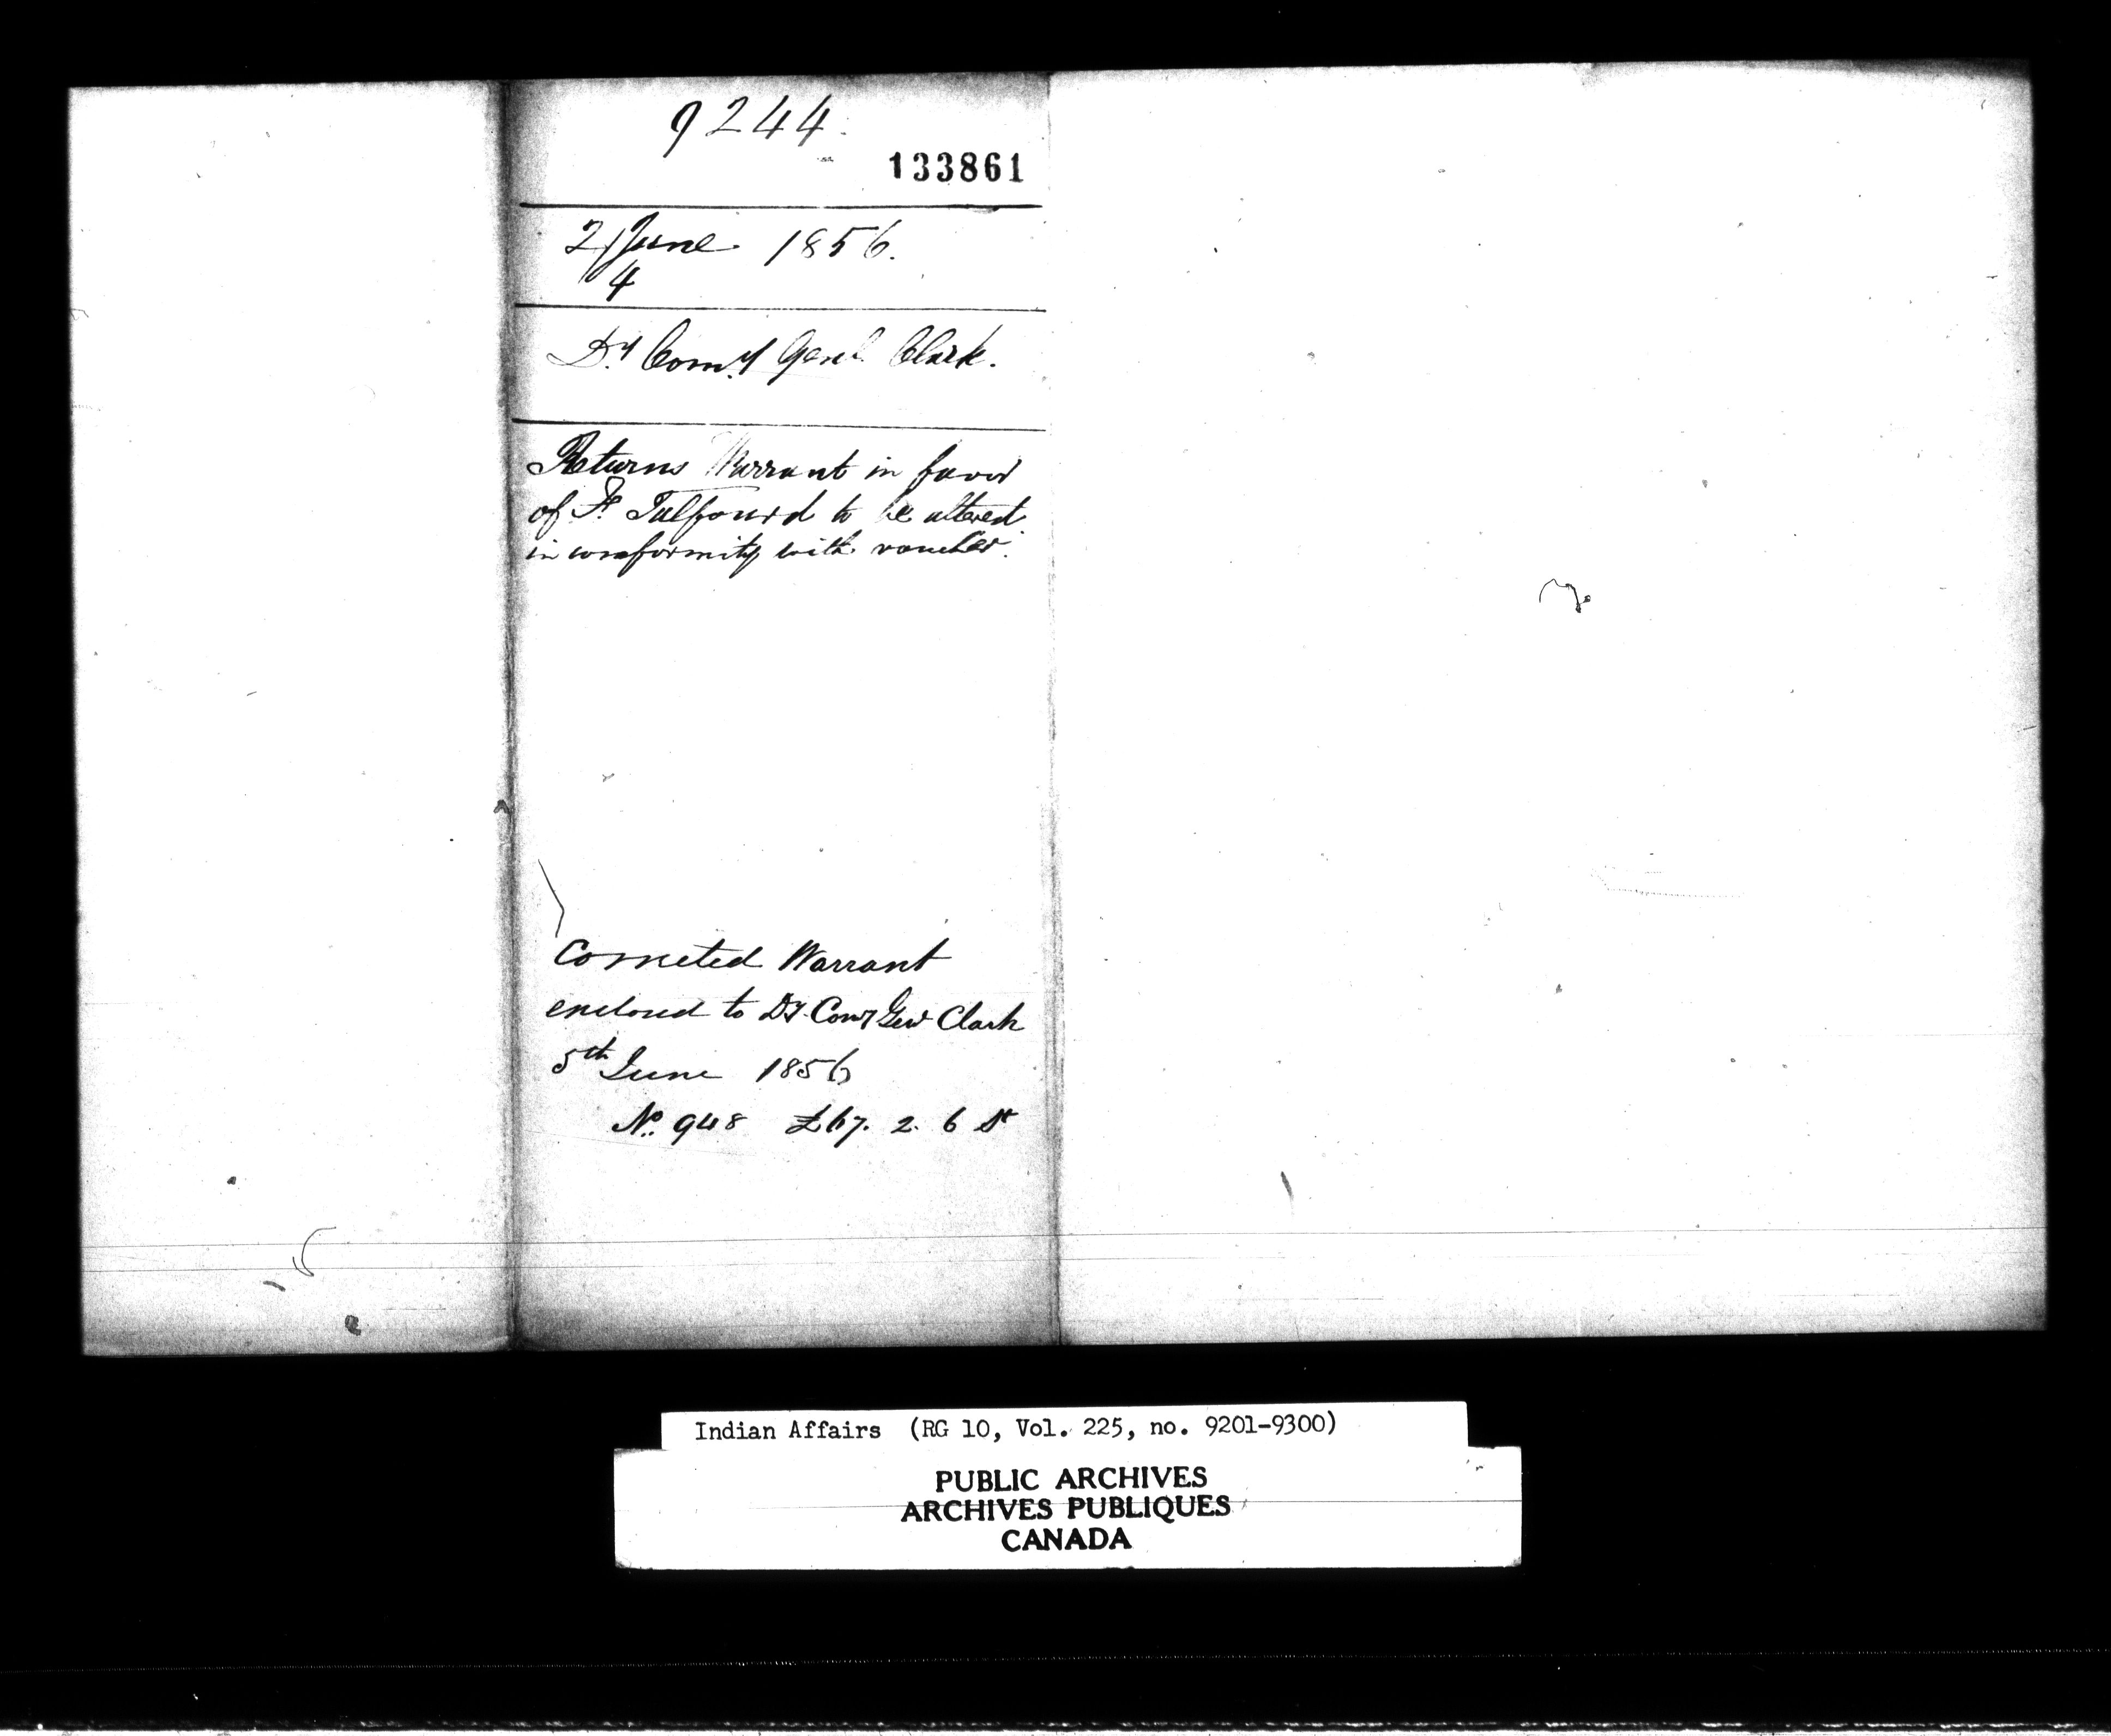 9244.
133861
2/ June 1856.
4
Dy. Comy. Genl. Clark.
Returns Warrant in favor
of F. Talfourd to be altered
in conformity with voucher.
Corrected Warrant
enclosed to Dy. Comy Genl Clark
5th June 1856
No. 948 £67. 2. 6 St
Indian Affairs (RG 10, Vol. 225, no. 9201-9300)
PUBLIC ARCHIVES
ARCHIVES PUBLIQUES
CANADA